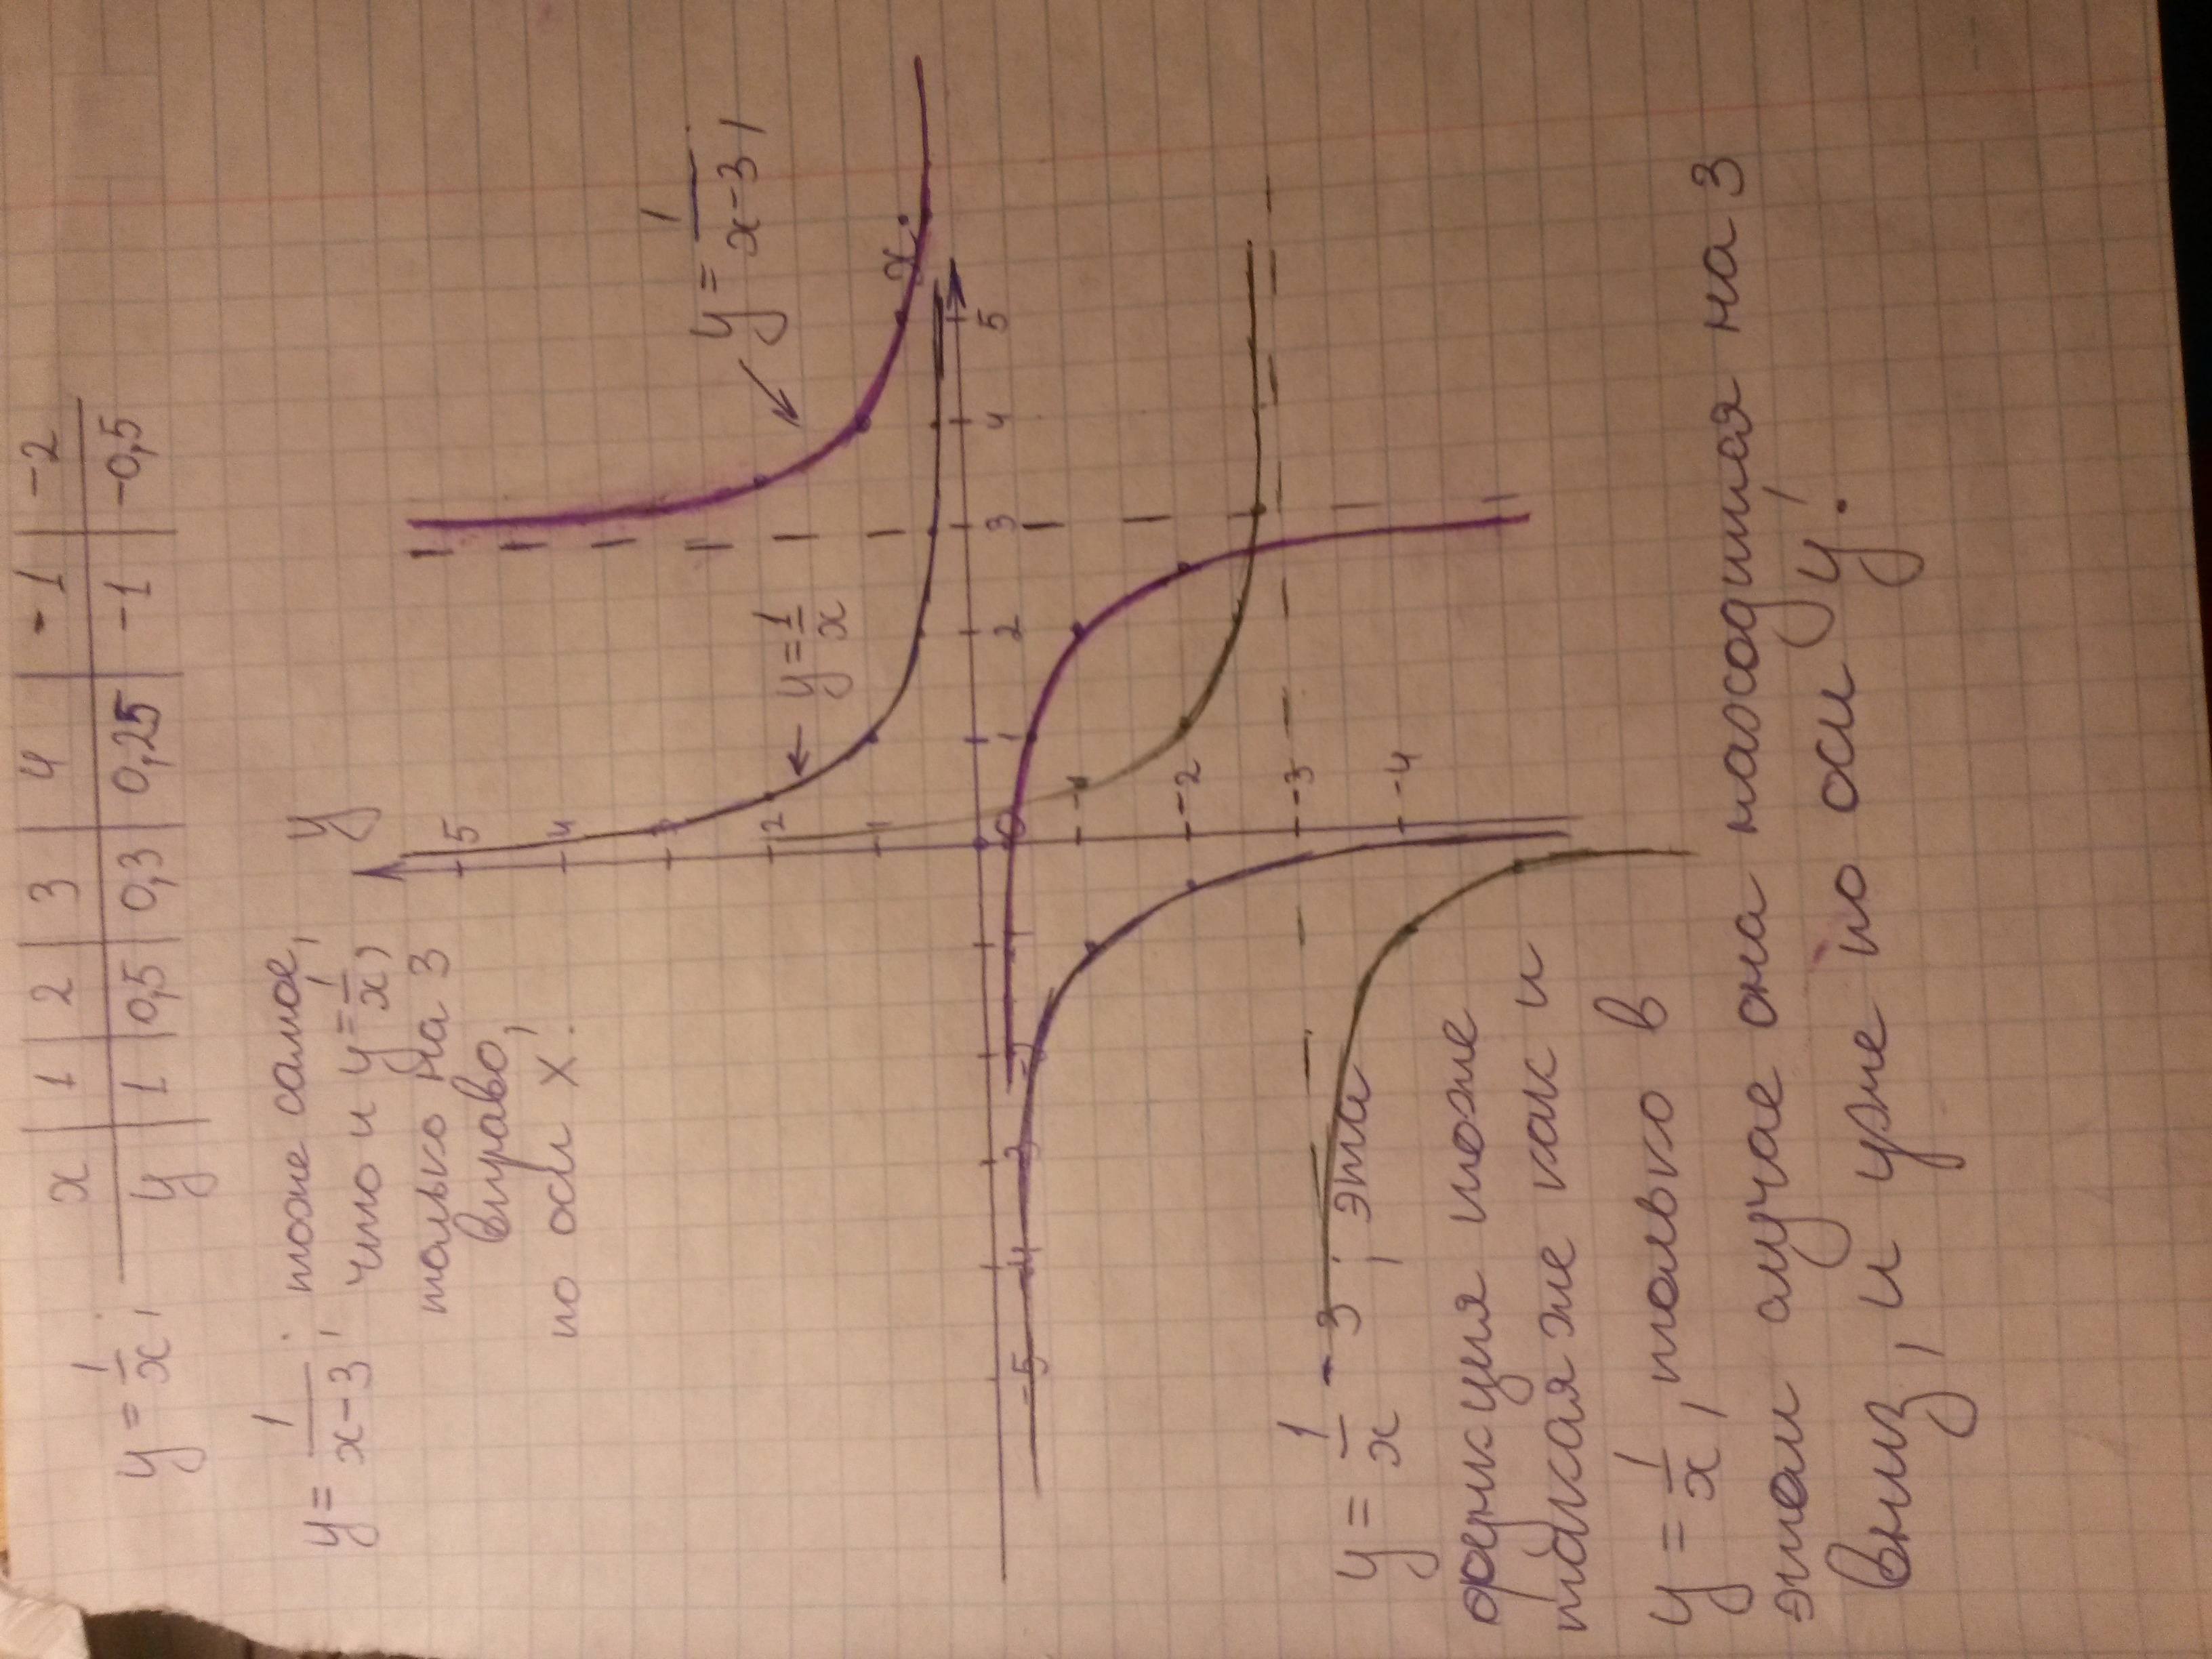 y = 1/x; x | 1 | 2 | 3 | 4 | -1 | -2
y | 1 | 0,5 | 0,3 | 0,25 | -1 | -0,5
y = 1/x-3; тоже самое,
что и y = 1/x,
только на 3
вправо,
по оси x.
y
5
4
3
2
1
y = 1/x
y = 1/x-3;
x.
-5 -4 -3 0 1 2 3 4 5
-1
-2
-3
-4
y = 1/x - 3; эта
функция тоже
такая же как и
y = 1/x, только в
этом случае она находится на 3
вниз, и уже по оси y.